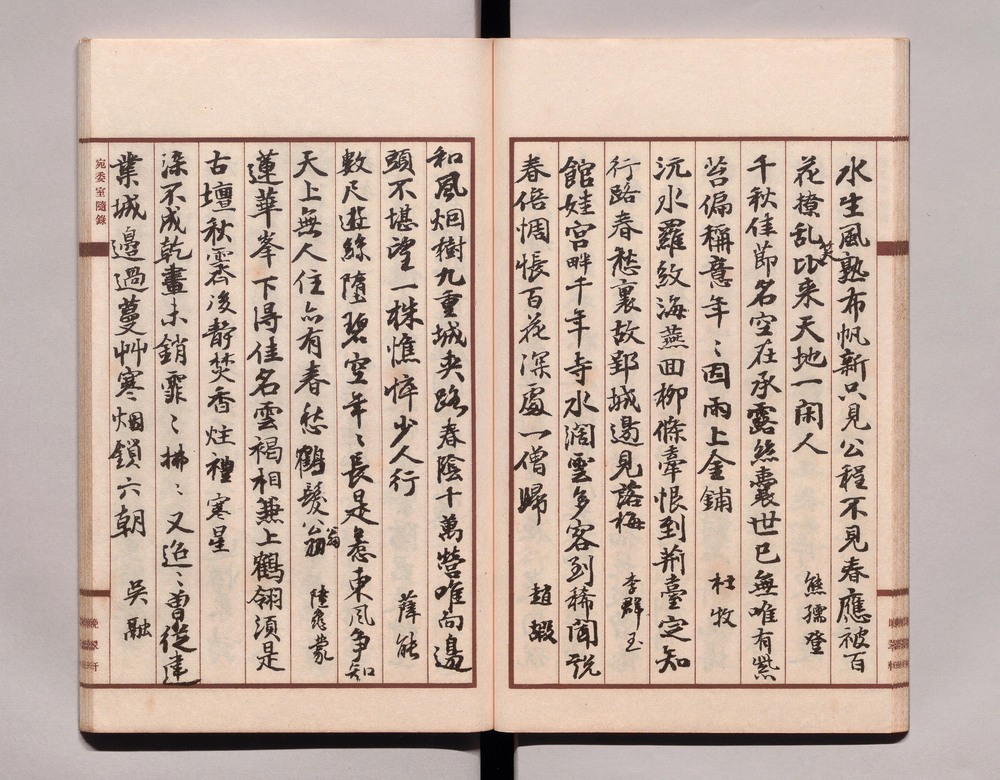 水生風熟布帆新只見公程不見春應被百
花撩亂笑比来天地一閑人 熊孺登
千秋佳節名空在承露絲囊世已無唯有紫
苔偏稱意年〻因雨上金鋪 杜牧
沅水羅紋海燕回柳條牽恨到荊臺定知
行路春愁裏故郢城邊見落梅 李群玉
館娃宮畔千年寺水濶雲多客到稀聞說
春倍惆悵百花深處一僧歸 趙嘏
和風烟樹九重城夾路春陰十萬營唯向邊
頭不堪望一株憔悴少人行 薛能
數尺遊絲墮碧空年〻長是惹東風爭知
天上無人住亦有春愁鶴髮翁 陸龜蒙
蓮華峯下得佳名雲褐相兼上鶴翎須是
古壇秋霽後静焚香炷禮寒星
染不成乾畫未銷霏〻拂〻又迢〻曾從建
業城邊過蔓艸寒烟鎖六朝 吳融
宛委室隨錄